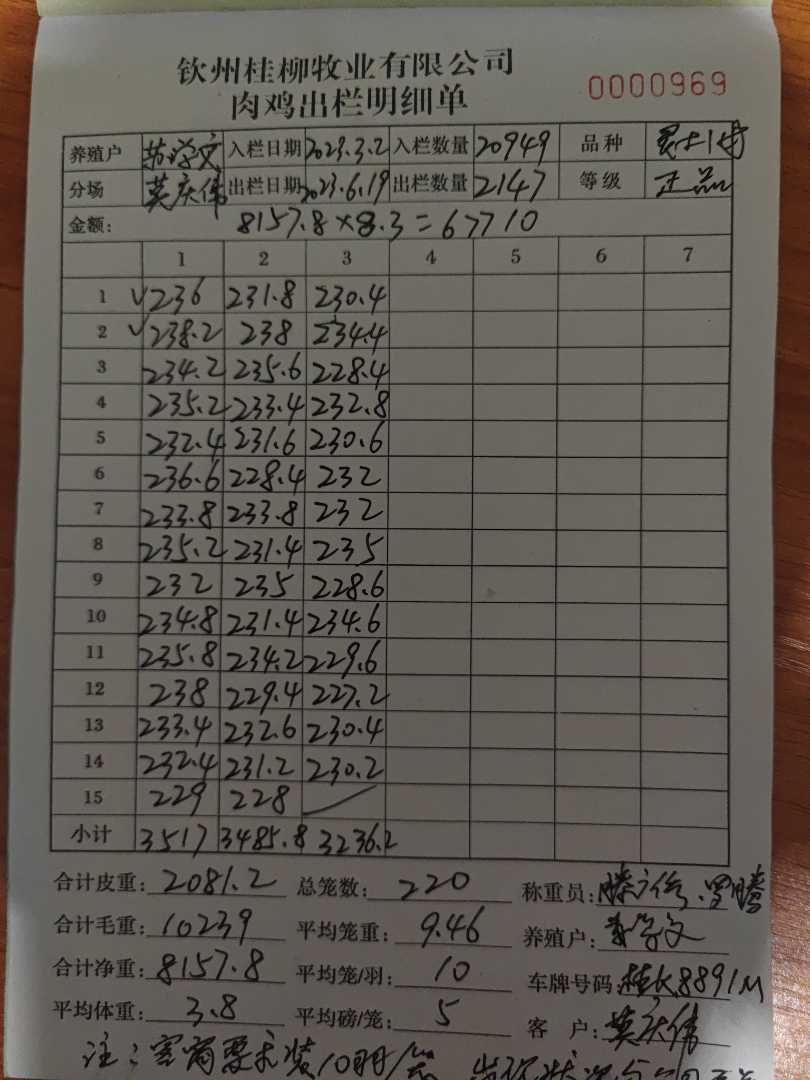 钦州桂柳牧业有限公司
肉鸡出栏明细单 0000969
养殖户 苏学文 入栏日期 2023.3.2 入栏数量 20949 品种
分场 莫庆伟 出栏日期 2023.6.19 出栏数量 2147 等级 正品
金额: 8157.8×8.3=67710
1 2 3 4 5 6 7
1 √236 231.8 230.4
2 √238.2 238 234.4
3 234.2 235.6 228.4
4 235.2 233.4 232.8
5 232.4 231.6 230.6
6 236.6 228.4 232
7 233.8 233.8 232
8 235.2 231.4 235
9 232 235 228.6
10 234.8 231.4 234.6
11 235.8 234.2 229.6
12 238 229.4 227.2
13 233.4 232.6 230.4
14 232.4 231.2 230.2
15 229 228
小计 3517 3485.8 3236.2
合计皮重: 2081.2 总笼数: 220 称重员:
合计毛重: 10239 平均笼重: 9.46 养殖户: 苏学文
合计净重: 8157.8 平均笼/羽: 10 车牌号码: 桂K8891M
平均体重: 3.8 平均磅/笼: 5 客 户: 莫庆伟
注:客商要求装10羽/笼